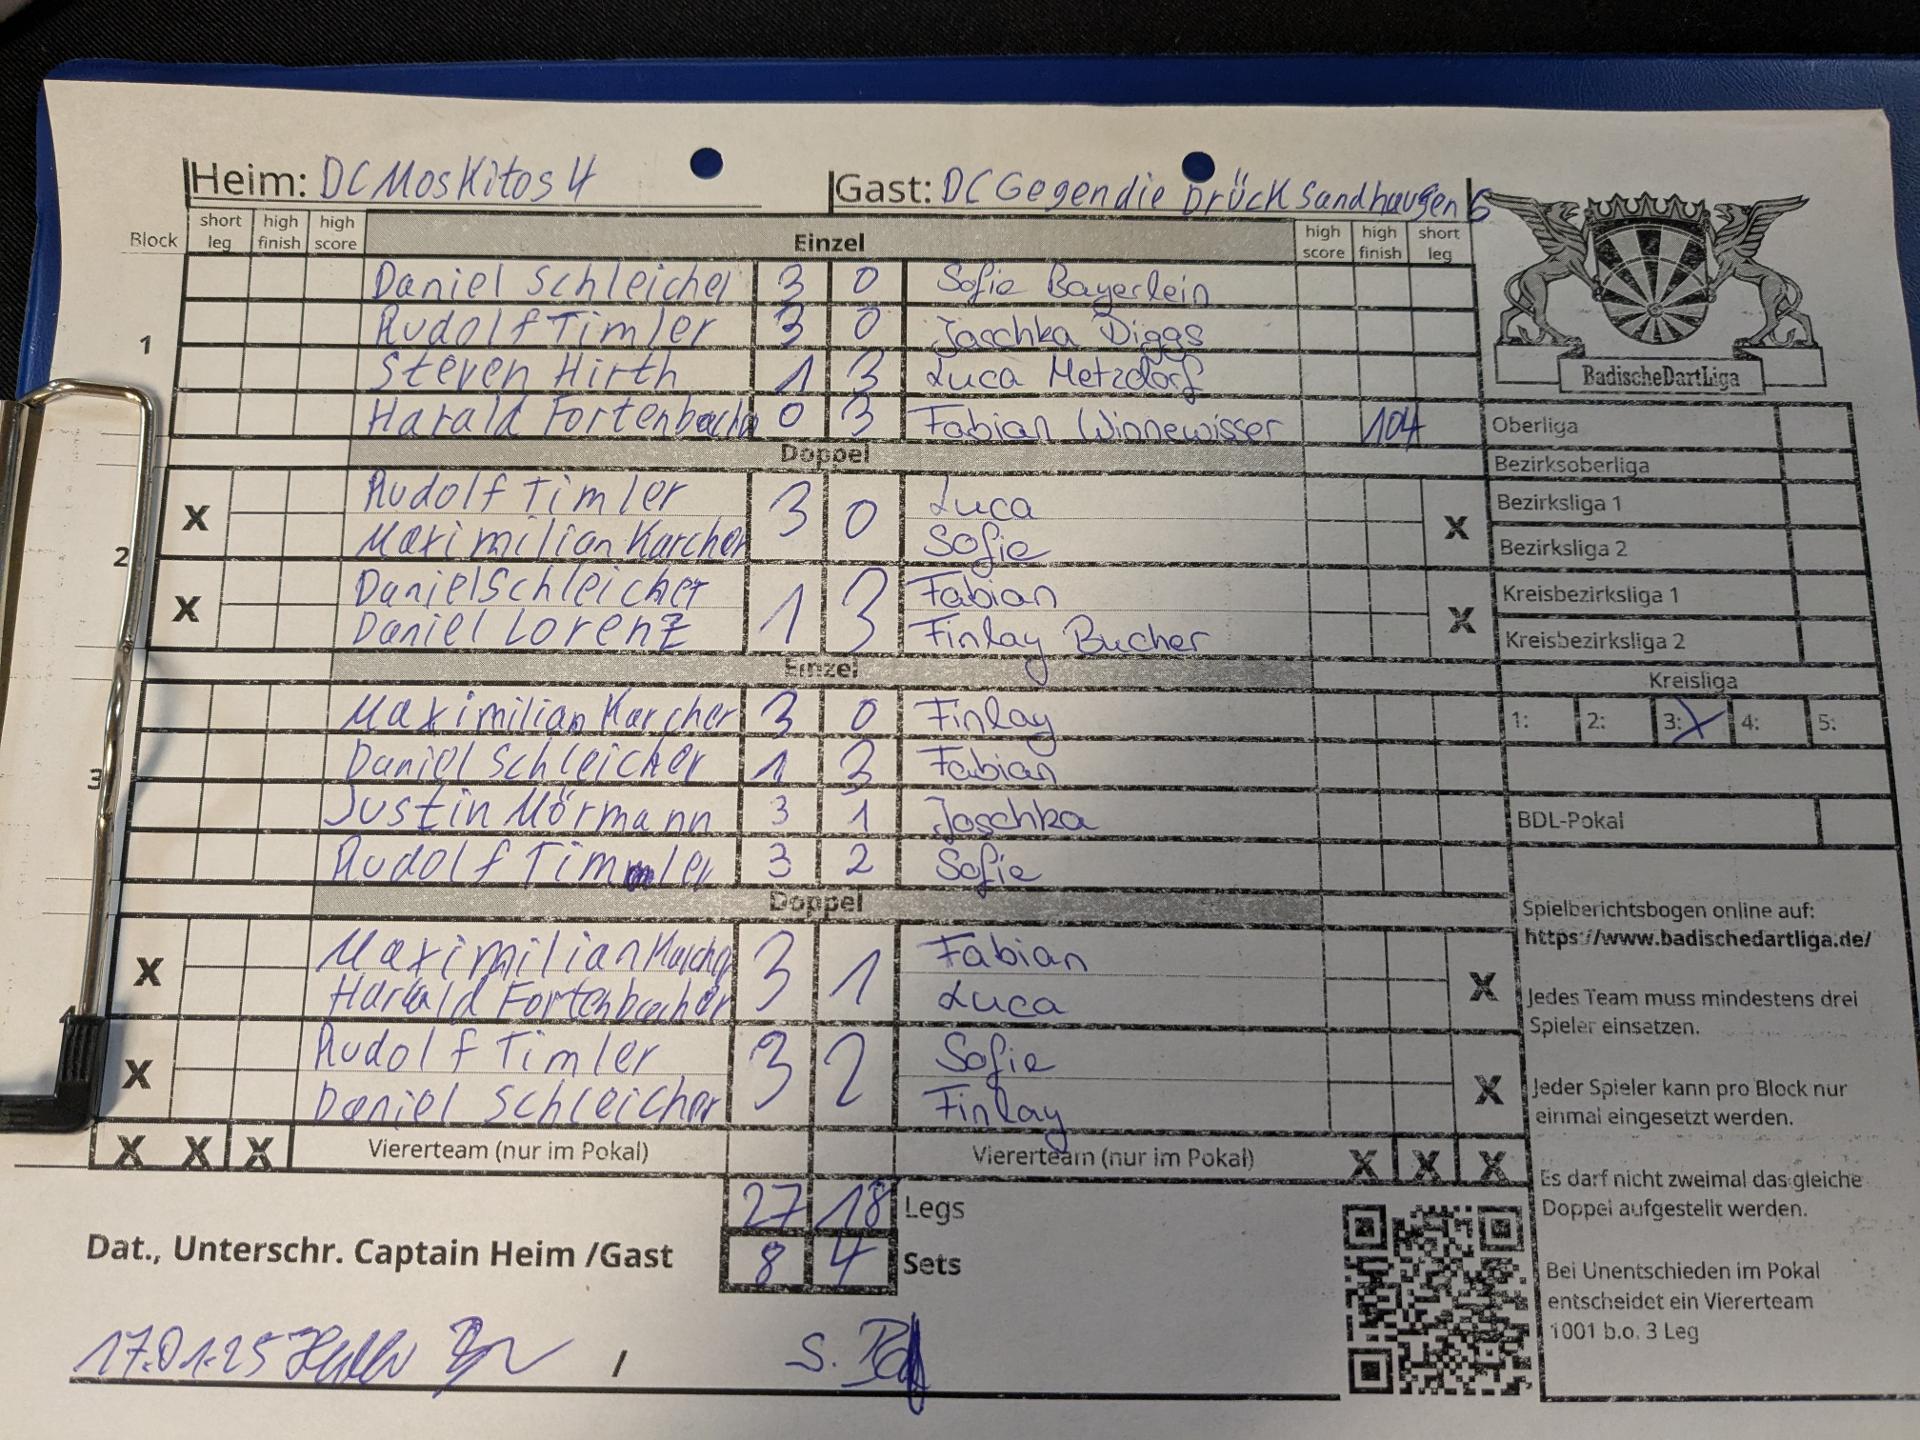 Heim: DC Moskitos 4
Gast: DC Gegen die Drück Sandhausen 6
Block short leg high finish high score Einzel high score high finish short leg
1
Daniel Schleicher 3 0 Sofie Bayerlein
Rudolf Timler 3 0 Jaschka Diggs
Steven Hirth 1 3 Luca Metzdorf
Harald Fortenbacher 0 3 Fabian Winnewisser 104
Doppel
2
X Rudolf Timler 3 0 Luca X
Maximilian Karcher Sofie
X Daniel Schleicher 1 3 Fabian X
Daniel Lorenz Finlay Bucher
Einzel
3
Maximilian Karcher 3 0 Finlay
Daniel Schleicher 1 3 Fabian
Justin Mörmann 3 1 Jaschka
Rudolf Timler 3 2 Sofie
Doppel
4
X Maximilian Karcher 3 1 Fabian X
Harald Fortenbacher Luca
X Rudolf Timler 3 2 Sofie X
Daniel Schleicher Finlay
X X X Viererteam (nur im Pokal) Viererteam (nur im Pokal) X X X
27 18 Legs
8 4 Sets
Dat., Unterschr. Captain Heim /Gast
17.01.25 / S.
BadischeDartLiga
Oberliga
Bezirksoberliga
Bezirksliga 1
Bezirksliga 2
Kreisbezirksliga 1
Kreisbezirksliga 2
Kreisliga
1: 2: 3: X 4: 5:
BDL-Pokal
Spielberichtsbogen online auf:
https://www.badischedartliga.de/
Jedes Team muss mindestens drei
Spieler einsetzen.
Jeder Spieler kann pro Block nur
einmal eingesetzt werden.
Es darf nicht zweimal das gleiche
Doppel aufgestellt werden.
Bei Unentschieden im Pokal
entscheidet ein Viererteam
1001 b.o. 3 Leg